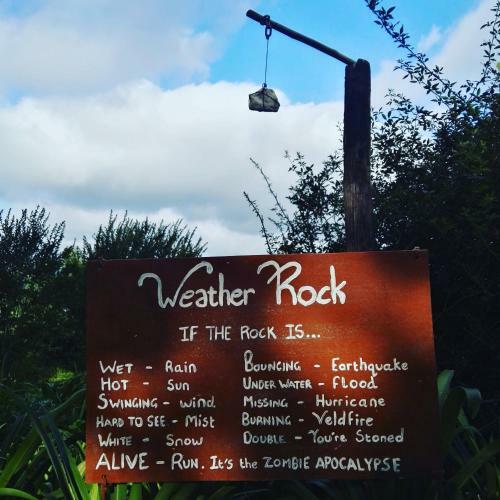 Weather Rock
IF THE ROCK IS...
WET - Rain
HOT - Sun
SWINGING - wind
HARD TO SEE - Mist
WHITE - Snow
BOUNCING - Earthquake
UNDER WATER - flood
MISSING - Hurricane
BURNING - Veldfire
DOUBLE - You're Stoned
ALIVE - RUN. It's the ZOMBIE APOCALYPSE